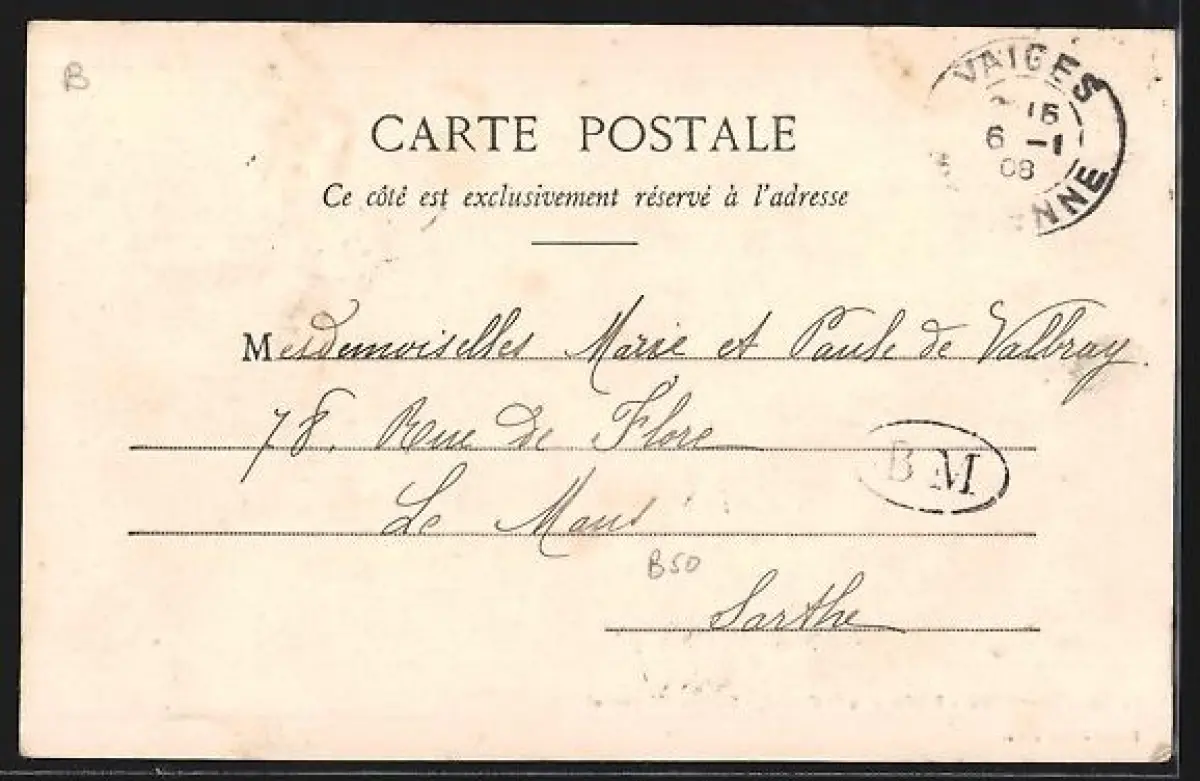 B
CARTE POSTALE
VAIGES
15
6 -1
08
NNE
Ce côté est exclusivement réservé à l'adresse
Mesdemoiselles Marie et Paule de Valbray
78, Rue de Flore
BM
Le Mans
B50
Sarthe